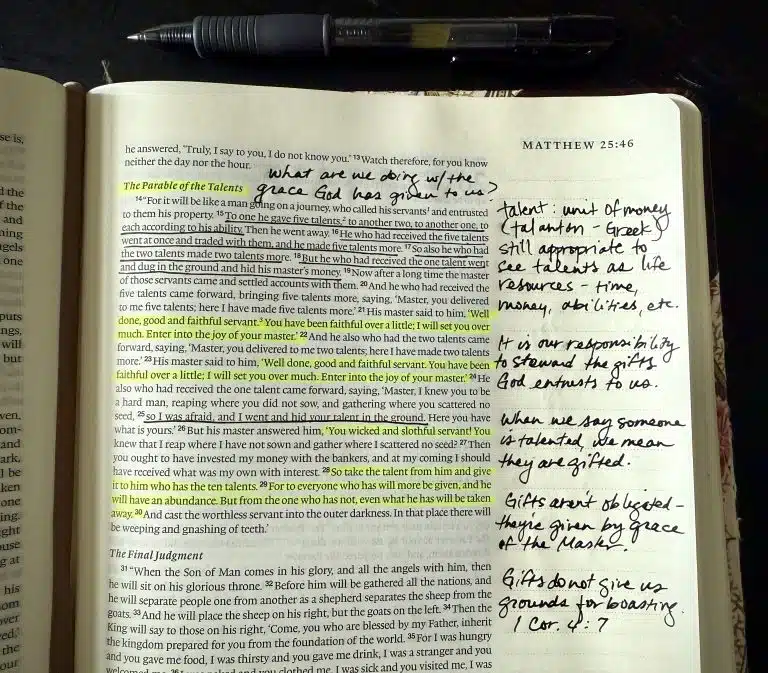 MATTHEW 25:46
he answered, 'Truly, I say to you, I do not know you.' 13 Watch therefore, for you know
neither the day nor the hour.
What are we doing w/ the
grace God has given to us?
The Parable of the Talents
14 "For it will be like a man going on a journey, who called his servants¹ and entrusted
to them his property. 15 To one he gave five talents,² to another two, to another one, to
each according to his ability. Then he went away. 16 He who had received the five talents
went at once and traded with them, and he made five talents more. 17 So also he who had
the two talents made two talents more. 18 But he who had received the one talent went
and dug in the ground and hid his master's money. 19 Now after a long time the master
of those servants came and settled accounts with them. 20 And he who had received the
five talents came forward, bringing five talents more, saying, 'Master, you delivered
to me five talents; here I have made five talents more.' 21 His master said to him, 'Well
done, good and faithful servant.³ You have been faithful over a little; I will set you over
much. Enter into the joy of your master.' 22 And he also who had the two talents came
forward, saying, 'Master, you delivered to me two talents; here I have made two talents
more.' 23 His master said to him, 'Well done, good and faithful servant. You have been
faithful over a little; I will set you over much. Enter into the joy of your master.' 24 He
also who had received the one talent came forward, saying, 'Master, I knew you to be
a hard man, reaping where you did not sow, and gathering where you scattered no
seed, 25 so I was afraid, and I went and hid your talent in the ground. Here you have
what is yours.' 26 But his master answered him, 'You wicked and slothful servant! You
knew that I reap where I have not sown and gather where I scattered no seed? 27 Then
you ought to have invested my money with the bankers, and at my coming I should
have received what was my own with interest. 28 So take the talent from him and give
it to him who has the ten talents. 29 For to everyone who has will more be given, and he
will have an abundance. But from the one who has not, even what he has will be taken
away. 30 And cast the worthless servant into the outer darkness. In that place there will
be weeping and gnashing of teeth.'
The Final Judgment
31 "When the Son of Man comes in his glory, and all the angels with him, then
he will sit on his glorious throne. 32 Before him will be gathered all the nations, and
he will separate people one from another as a shepherd separates the sheep from the
goats. 33 And he will place the sheep on his right, but the goats on the left. 34 Then the
King will say to those on his right, 'Come, you who are blessed by my Father, inherit
the kingdom prepared for you from the foundation of the world. 35 For I was hungry
and you gave me food, I was thirsty and you gave me drink, I was a stranger and you
welcomed me, 36 I was naked and you clothed me, I was sick and you visited me, I was
talent: unit of money
(talanton - Greek)
still appropriate to
see talents as life
resources - time,
money, abilities, etc.
It is our responsibility
to steward the gifts
God entrusts to us.
When we say someone
is talented, we mean
they are gifted.
Gifts aren't obligated -
they're given by grace
of the Master.
Gifts do not give us
grounds for boasting.
1 Cor. 4:7